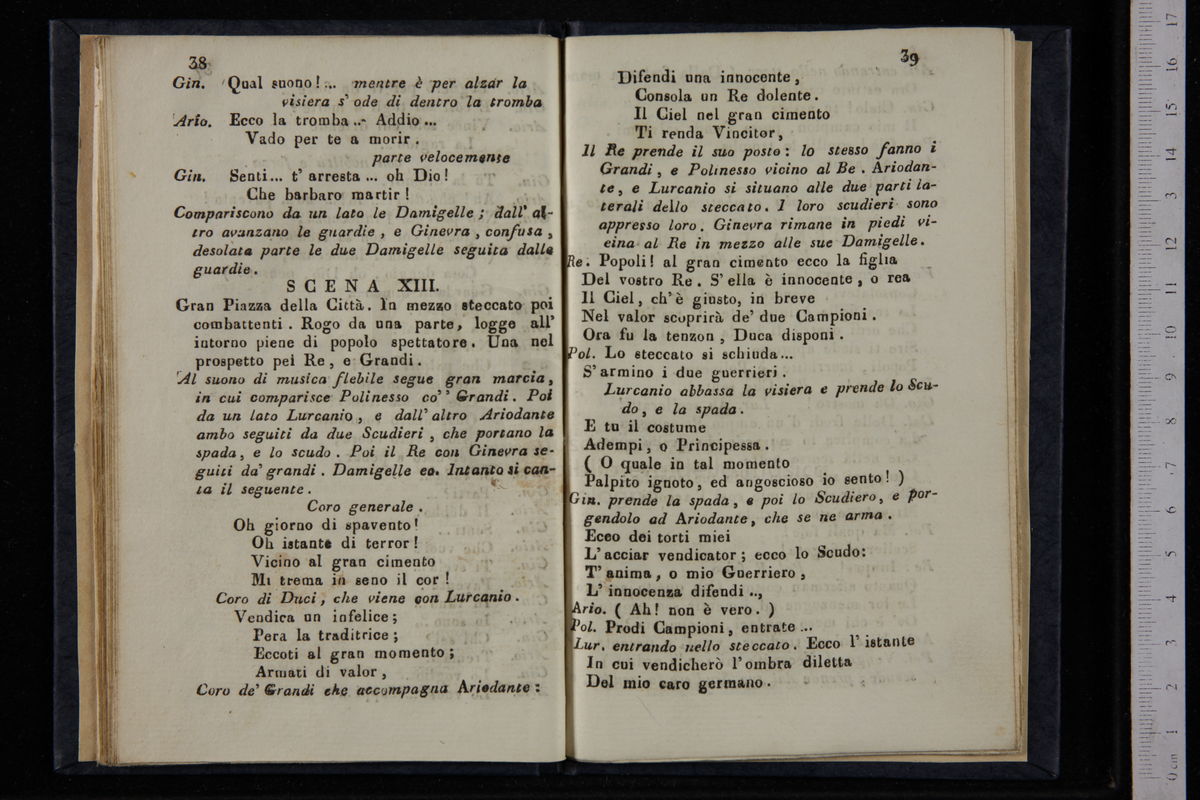 38
Gin. Qual suono!... mentre è per alzar la
visiera s' ode di dentro la tromba
Ario. Ecco la tromba... Addio...
Vado per te a morir.
parte velocemente
Gin. Senti... t' arresta... oh Dio!
Che barbaro martir!
Compariscono da un lato le Damigelle; dall' al-
tro avanzano le guardie, e Ginevra, confusa,
desolata parte le due Damigelle seguita dalle
guardie.
SCENA XIII.
Gran Piazza della Città. In mezzo steccato poi
combattenti. Rogo da una parte, logge all'
intorno piene di popolo spettatore. Una nel
prospetto pel Re, e Grandi.
Al suono di musica flebile segue gran marcia,
in cui comparisce Polinesso co'' Grandi. Poi
da un lato Lurcanio, e dall' altro Ariodante
ambo seguiti da due Scudieri, che portano la
spada, e lo scudo. Poi il Re con Ginevra se-
guiti da' grandi. Damigelle ec. Intanto si can-
ta il seguente.
Coro generale.
Oh giorno di spavento!
Oh istante di terror!
Vicino al gran cimento
Mi trema in seno il cor!
Coro di Duci, che viene con Lurcanio.
Vendica un infelice;
Pera la traditrice;
Eccoti al gran momento;
Armati di valor,
Coro de' Grandi che accompagna Ariodante:
39
Difendi una innocente,
Consola un Re dolente.
Il Ciel nel gran cimento
Ti renda Vincitor,
Il Re prende il suo posto: lo stesso fanno i
Grandi, e Polinesso vicino al Be. Ariodan-
te, e Lurcanio si situano alle due parti la-
terali dello steccato. I loro scudieri sono
appresso loro. Ginevra rimane in piedi vi-
eina al Re in mezzo alle sue Damigelle.
Re. Popoli! al gran cimento ecco la figlia
Del vostro Re. S' ella è innocente, o rea
Il Ciel, ch' è giusto, in breve
Nel valor scoprirà de' due Campioni.
Ora fu la tenzon, Duca disponi.
Pol. Lo steccato si schiuda...
S' armino i due guerrieri.
Lurcanio abbassa la visiera e prende lo Scu-
do, e la spada.
E tu il costume
Adempi, o Principessa.
( O quale in tal momento
Palpito ignoto, ed angoscioso io sento! )
Gin. prende la spada, e poi lo Scudiero, e por-
gendolo ad Ariodante, che se ne arma.
Eceo dei torti miei
L' acciar vendicator; ecco lo Scudo:
T' anima, o mio Guerriero,
L' innocenza difendi ..,
Ario. ( Ah! non è vero. )
Pol. Prodi Campioni, entrate...
Lur. entrando nello steccato. Ecco l' istante
In cui vendicherò l' ombra diletta
Del mio caro germano.
0 cm 1 2 3 4 5 6 7 8 9 10 11 12 13 14 15 16 17